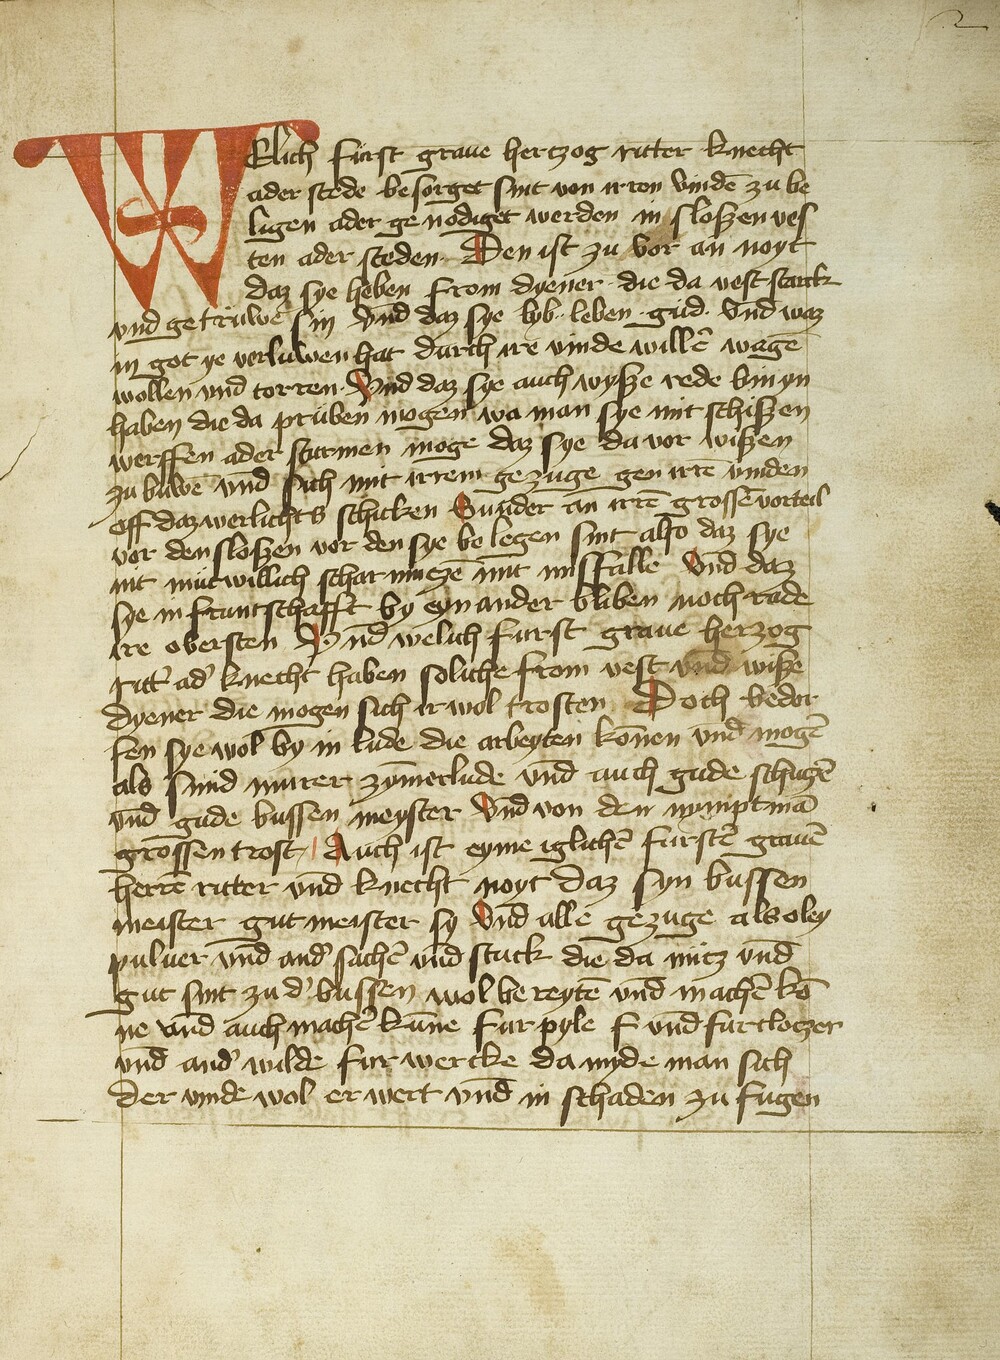 2
WElich fürst graue hertzog ritter knecht
ader stede besorget sint von irren vindē zu be
ligen ader genodiget werden in sloßen ves
ten ader steden. Den ist zu vor an noyt
daz sye heben from dyener die da vest starck
vnd getruwe sin vnd daz sye lyb. leben. gud. vnd waz
in got ye verluwen hat durch ire vinde willē wagē
wollen vnd torren. Vnd daz sye auch wysze rede bin yn
haben die da prüben mogen wa man sye mit schißen
werffen ader sturmen moge daz sye da vor wißen
zu buwē vnd sich mit irrem gezuge gen irre vinden
off daz werlichts schicken Sunder an irrē grossē vorteil
vor den sloßen vor den sye be legen sint also daz sye
nit mutwillich scharmutzē mit misffalle vnd daz
sye in fruntschafft by eyn ander bliben noch rade
ire obersten Vnd welich furst graue herzog
ritt' ad' knecht haben soliche from vest vnd wiße
dyener die mogen sich ir wol trosten Doch bedor
fen sye wol by in lude die arbeyten konnen vnd mogē
als smid murer zymerlude vnd auch gude schutzē
vnd gude bussen meyster Vnd von den nympt mā
grossen trost / Auch ist eyme iglichē furstē grauē
herrē ritter vnd knecht noyt daz syn bussen
meister gut meister sy Vnd alle gezuge als oley
puluer vnd and' sachē vnd stuck die da nutz vnd
gut sint zu d' bussen wol bereytē vnd machē kō
ne vnd auch machē kunne fur pyle f vnd fur cloczer
vnd and' wilde fur wercke da myde man sich
der vinde wol erwert vnd in schaden zu fugen